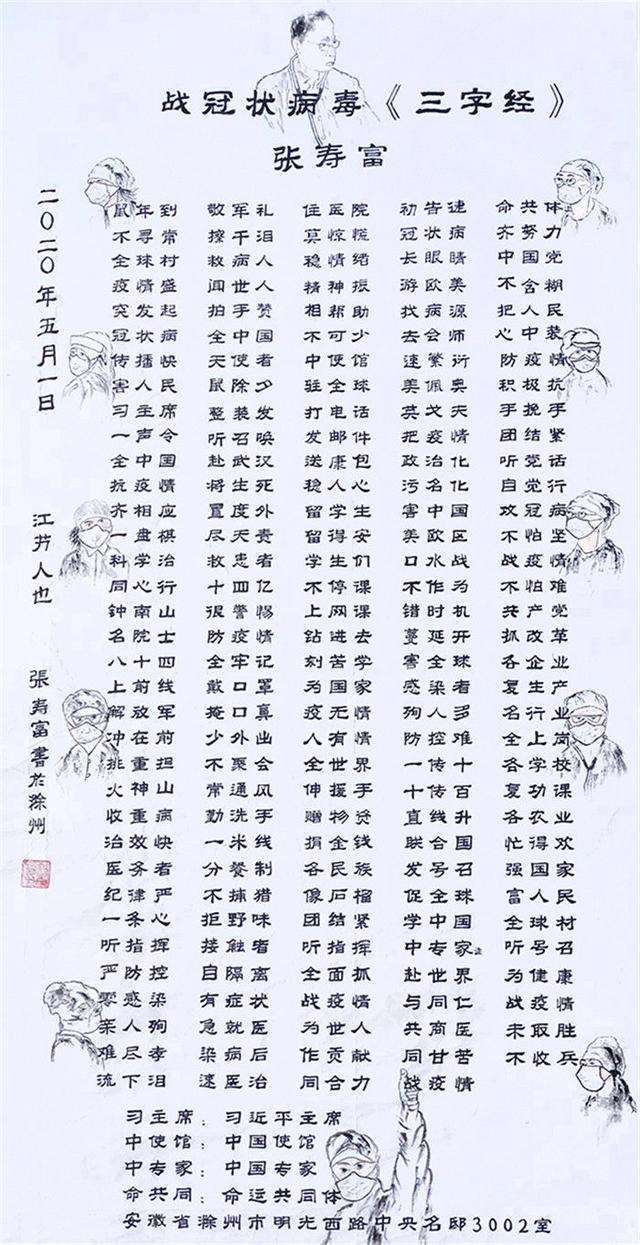 战冠状病毒《三字经》
张寿富
鼠年到
不寻常
全球村
疫情盛
突发起
冠状病
传播快
害人民
习主席
一声令
全中国
抗疫情
齐相应
一盘棋
科学治
同心行
钟南山
名院士
八十四
上前线
解放军
冲在前
挑重担
火神山
收重病
治效快
医务者
纪律严
一条心
听指挥
严防控
零感染
亲人殉
难尽孝
流下泪
敬军礼
擦干泪
救病人
闻世人
拍手赞
全中国
天使者
鼠除夕
整装发
听召唤
赴武汉
将生死
置度外
尽天责
救患者
十四亿
很警惕
防疫情
全牢记
戴口罩
掩口鼻
少外出
不聚会
常通风
勤洗手
一米线
分餐制
不捕猎
拒野味
接触者
自隔离
有症状
急就医
染病后
速医治
住医院
莫惊慌
稳情绪
精神振
相帮助
不可少
中使馆
驻全球
打电话
发邮件
送康包
稳人心
留学生
留得安
学生们
不停课
上网课
钻进去
刻苦学
为国家
疫无情
人有情
全世界
伸援手
赠物资
捐金钱
各民族
像石榴
团结紧
听指挥
全面抓
战疫情
为世人
作贡献
同合力
初告捷
冠状病
长眼睛
游欧美
找病源
去会师
速繁衍
美佩奥
英戈灭
把疫情
政治化
污名化
害中国
美欧医
口水战
不作为
错时机
蔓延开
害全球
感染者
殉人多
防控难
一传十
十传百
直线升
联合国
发号召
促全球
学中国
中专家
赴世界
与同仁
共商医
同甘苦
战疫情
命共体
齐努力
中国党
不含糊
把人民
心中装
防疫情
积极抗
手挽手
团结紧
听党话
自党行
攻冠病
不怕坚
战疫情
不怕难
共产党
抓改革
各企业
复生产
名行业
全上岗
各学校
复功课
各农业
忙得欢
强国家
富人民
全球村
听号召
为健康
战疫情
未取胜
不收兵
二〇二〇年五月一日
江苏人也
張寿富書於滁州
习主席:习近平主席
中使馆:中国使馆
中专家:中国专家
命共同:命运共同体
安徽省滁州市明光西路中央名邸3002室